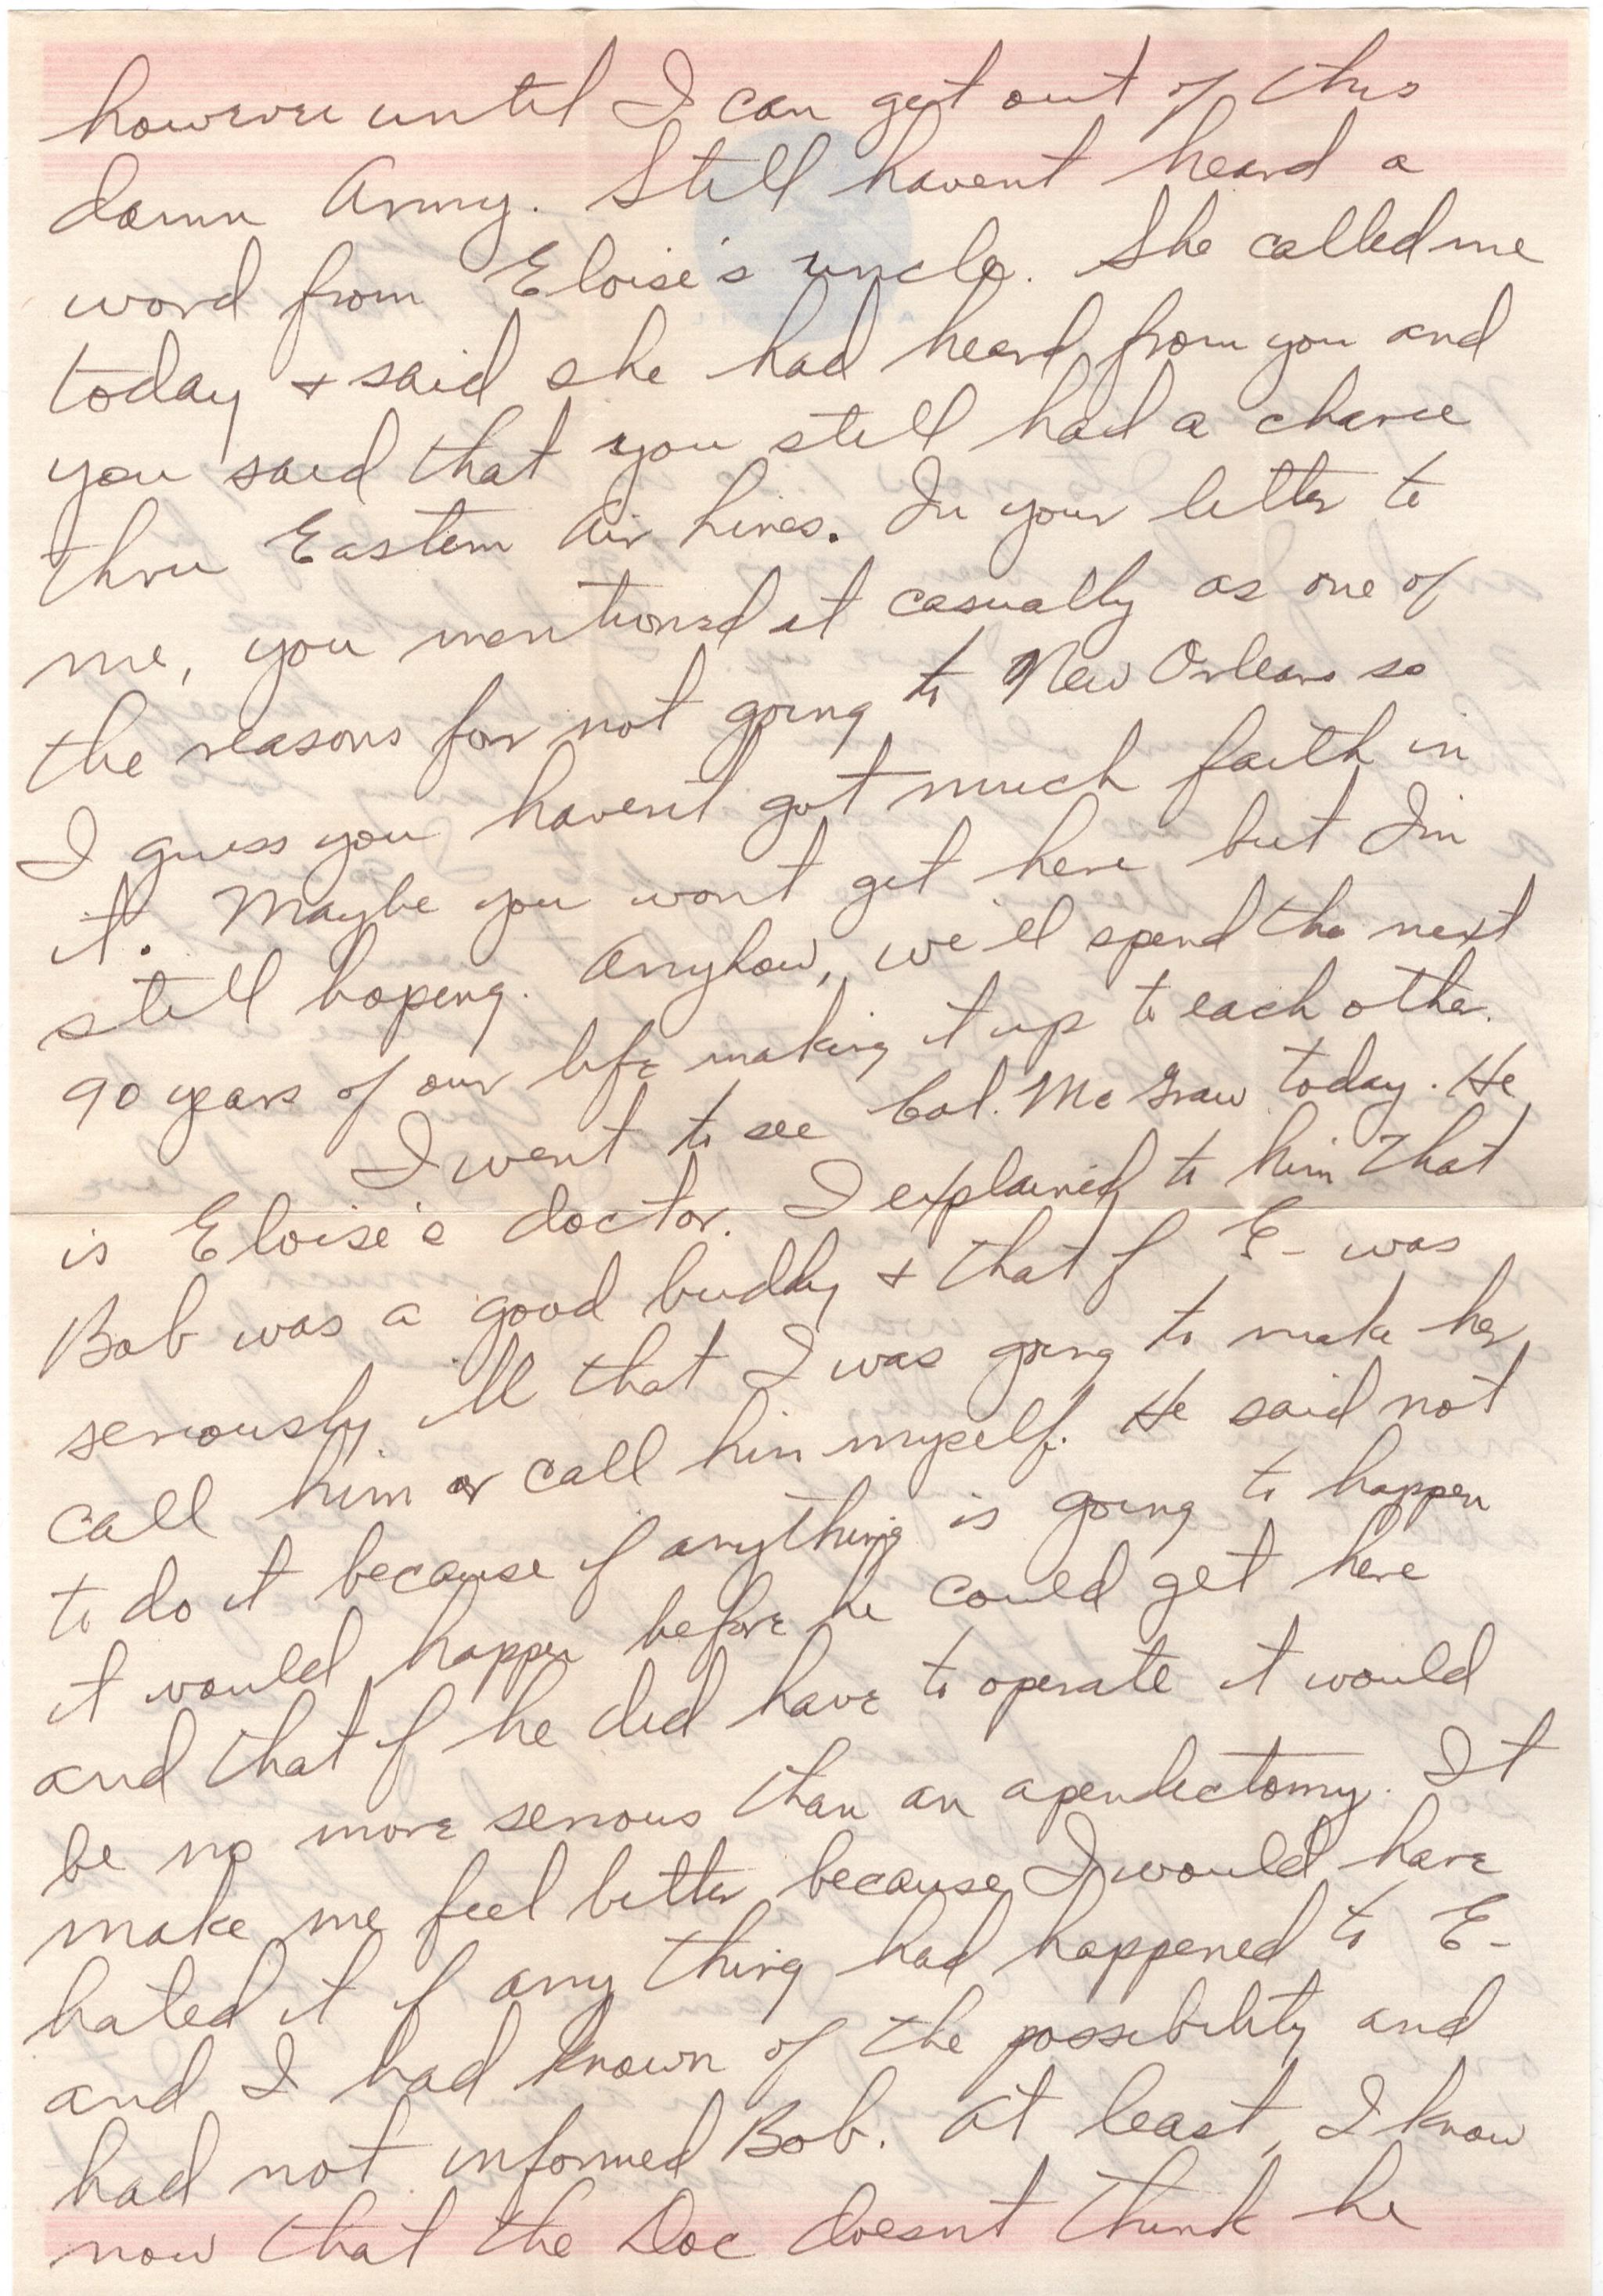 however until I can get out of this
damn Army. Still havent heard a
word from Eloise's uncle. She called me
today + said she had heard from you and
you said that you still had a chance
thru Eastern Air Lines. In your letter to
me, you mentioned it casually as one of
the reasons for not going to New Orleans so
I guess you havent got much faith in
it. Maybe you wont get here but I'm
still hoping. Anyhow, we'll spend the next
90 years of our life making it up to each other.
I went to see Col. McGraw today. He
is Eloise's doctor. I explained to him that
Bob was a good buddy + that if E- was
seriously ill that I was going to make her
call him or call him myself. He said not
to do it because if anything is going to happen
it would happen before he could get here
and that if he did have to operate it would
be no more serious than an apendectomy. It
make me feel better because I would have
hated it if any thing had happened to E-
and I had known of the possibility and
had not informed Bob. At least, I know
now that the Doc doesnt think he